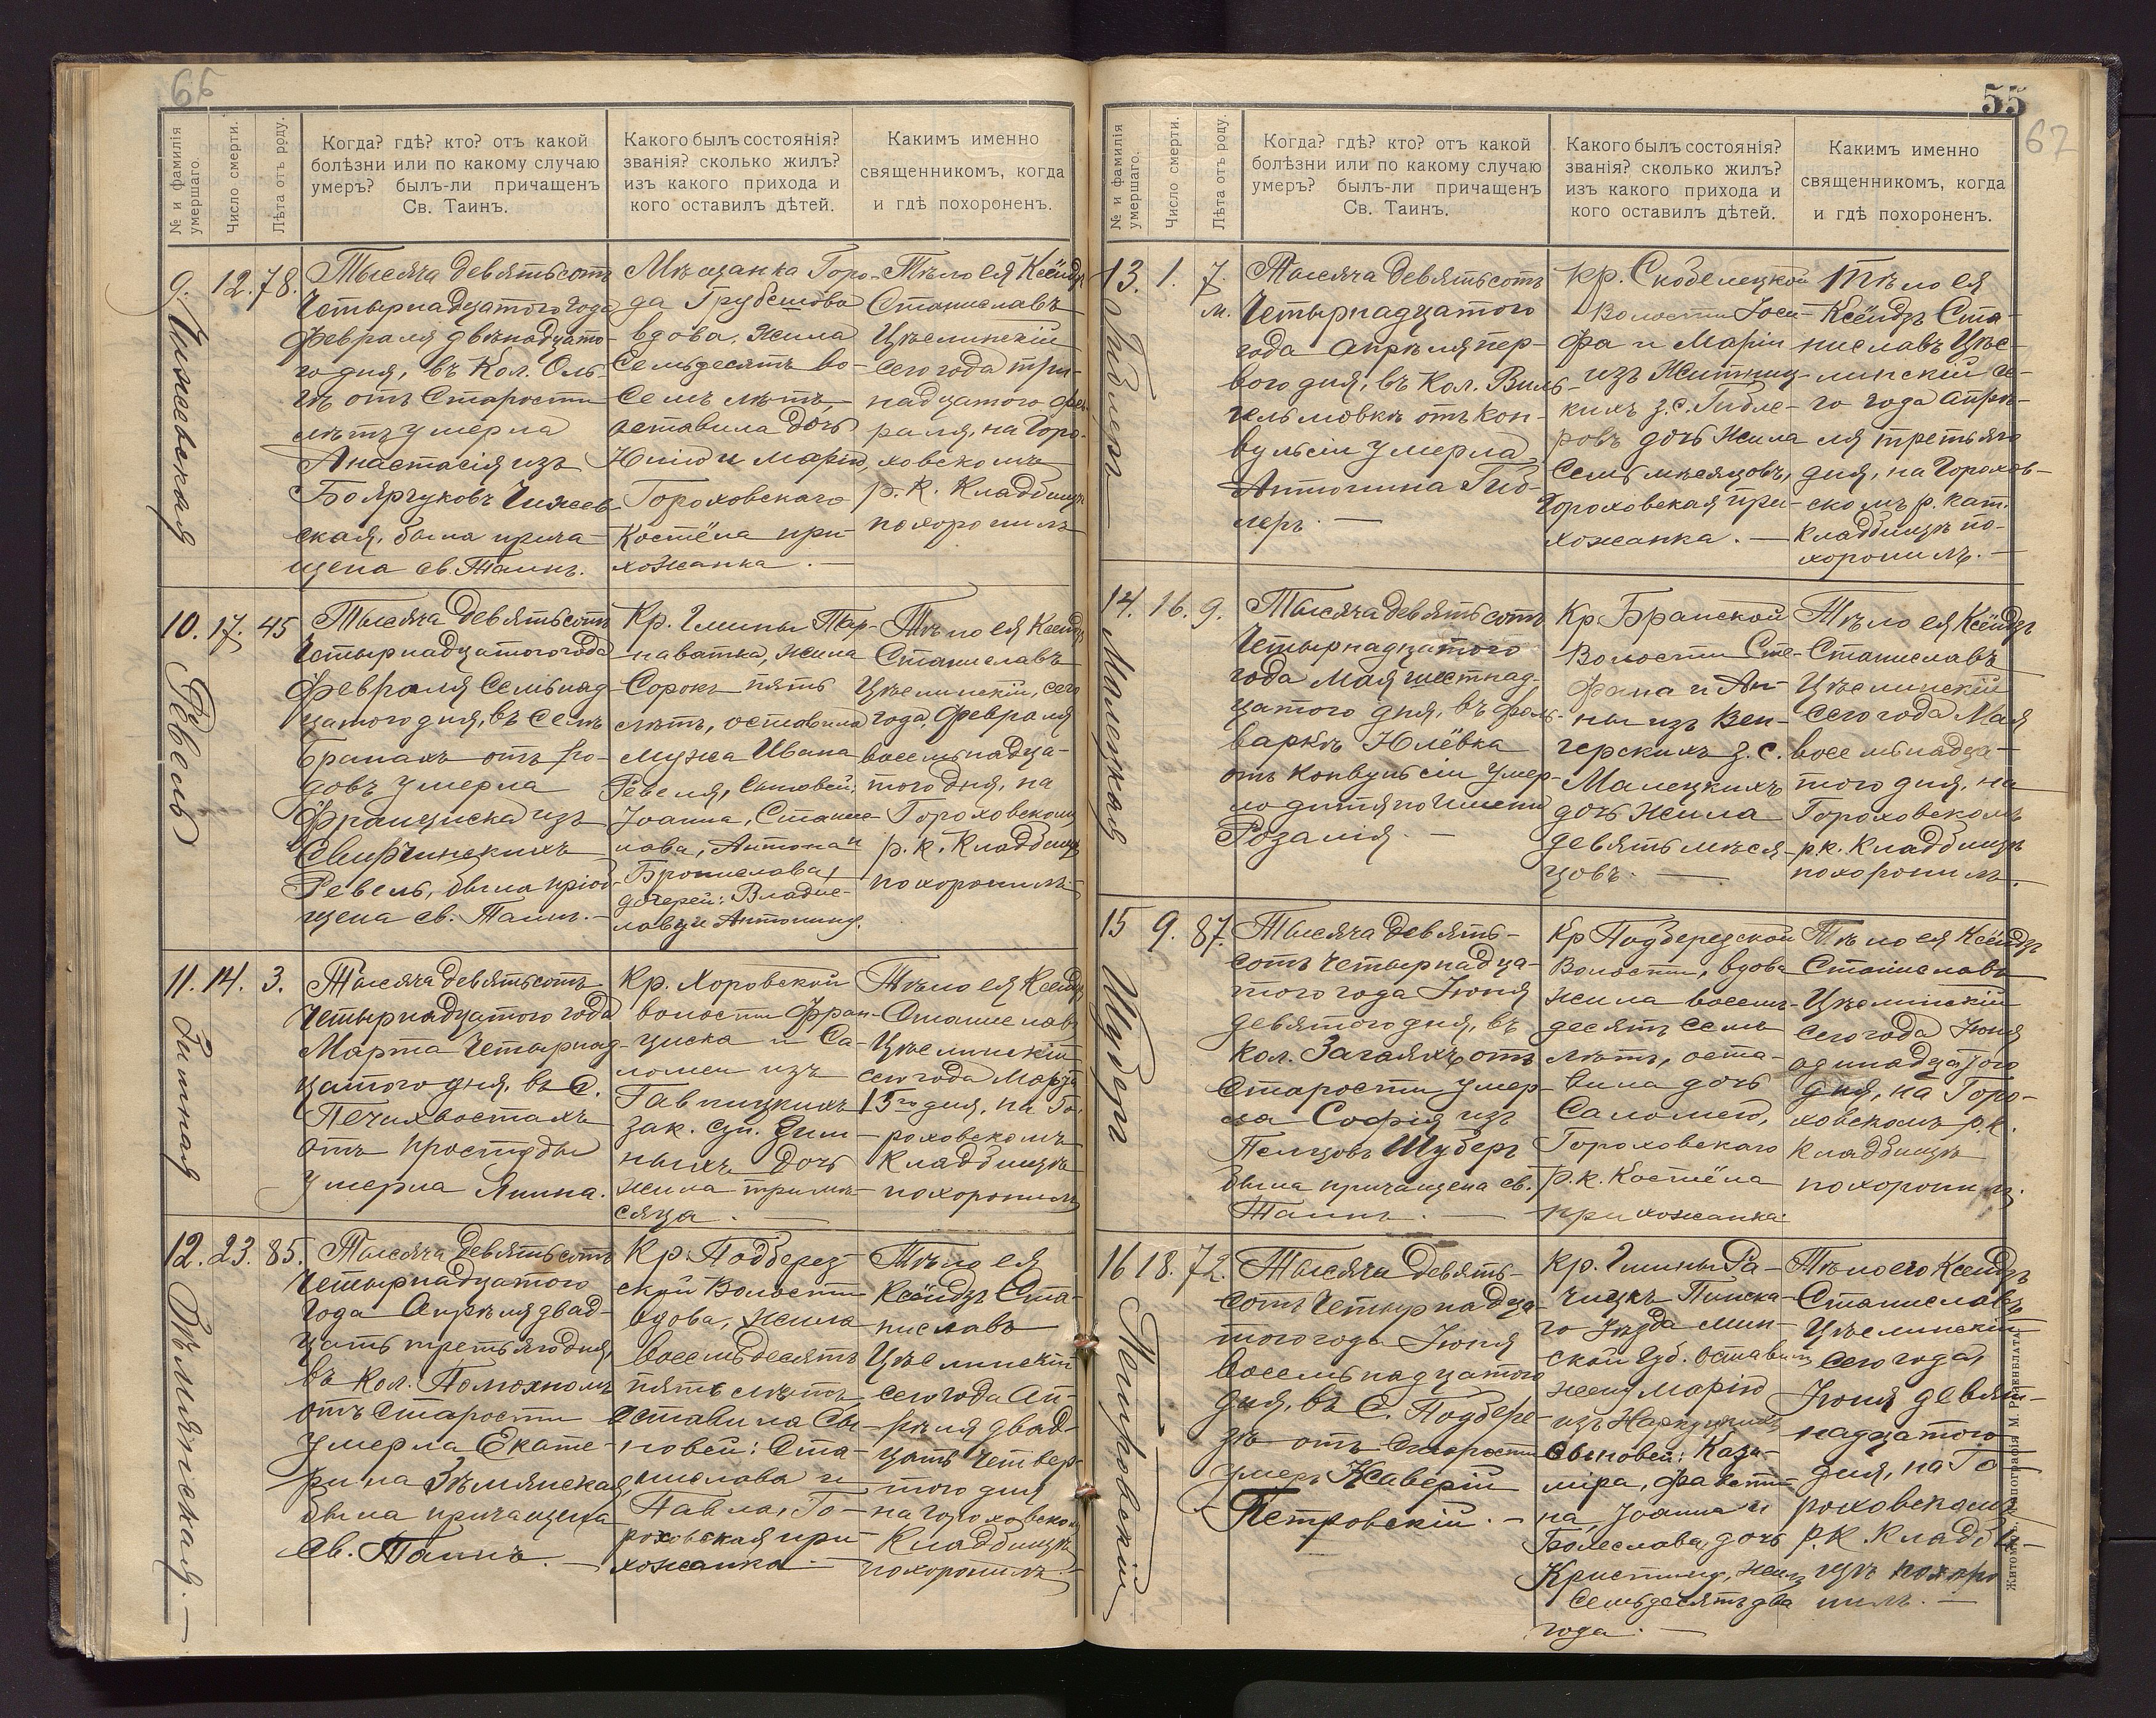 66
№ и фамилія умершаго.
Число смерти.
Лѣта отъ роду.
Когда? гдѣ? кто? отъ какой
болѣзни или по какому случаю
умеръ? былъ-ли причащенъ
Св. Таинъ.
Какого былъ состоянія?
званія? сколько жилъ?
изъ какого прихода и
кого оставилъ дѣтей.
Какимъ именно
священникомъ, когда
и гдѣ похороненъ.
9. Чижевская
12. 78.
Тысяча девятьсотъ
Четырнадцатого года
Февраля двѣнадцато-
го дня, въ Кол. Оль-
гѣ отъ Старости
лѣтъ умерла
Анастасія изъ
Боярчуковъ Чижев-
ская, была прича-
щена св. Таинъ.
Мѣщанка Горо-
да Грубешова
вдова, жила
Семьдесятъ во-
семъ лѣтъ,
оставила дочь
Юлію и Марію,
Гороховскаго
Костёла при-
хожанка.
Тѣло ея Ксёндзъ
Станиславъ
Цѣслинскій
сего года три-
надцатого фев-
раля, на Горо-
ховскомъ
р. к. Кладбищѣ
похоронилъ
10. Ревель
17. 45
Тысяча девятьсотъ
Четырнадцатого года
Февраля Семьнад-
цатого дня, въ Семъ
Бранахъ отъ ро-
довъ умерла
Францишка изъ
Свирчинскихъ
Ревель, была пріоб-
щена св. Таинъ.
Кр. Гмины Тар-
наватка, жила
Сорокъ пять
лѣтъ, оставила
мужа Ивана
Ревеля, сыновей:
Іоанна, Станис-
лава, Антона и
Бронислава,
дочерей: Владис-
лаву и Антонину.
Тѣло ея Ксёндзъ
Станиславъ
Цѣслинскій, сего
года, Февраля
восемьнадца-
того дня, на
Гороховскомъ
р. к. Кладбищѣ
похоронилъ
11. Зимная
14. 3.
Тысяча девятьсотъ
Четырнадцатого года
Марта Четырнад-
цатого дня, въ С.
Печихвостахъ
отъ простуды
умерла Янина.
Кр. Хоровской
волости Фран-
циска и Са-
ломеи изъ
Гавлицкихъ
зак. суп. Зим-
ныхъ дочь
жила три мѣ-
сяца.
Тѣло ея Ксёндзъ
Станиславъ
Цѣслинскій
сего года Марта
13го дня, на Го-
роховскомъ
Кладбищѣ
похоронилъ
12. Зѣмлянская.
23. 85.
Тысяча девятьсотъ
Четырнадцатого
года Апрѣля двад-
цать третьяго дня,
въ Кол. Полюхномъ
отъ Старости
умерла Екате-
рина Зѣмлянская,
была причащена
Св. Таинъ.
Кр. Подберез-
ской Волости
вдова, жила
восемьдесятъ
пять лѣтъ,
оставила Сы-
новей: Ста-
нислава и
Павла, Го-
роховская при-
хожанка
Тѣло ея
Ксёндзъ Ста-
ниславъ
Цѣслинскій
сего года Ап-
рѣля двад-
цать четвер-
того дня
на Гороховскомъ
Кладбищѣ
похоронилъ
55
67
№ и фамилія умершаго.
Число смерти.
Лѣта отъ роду.
Когда? гдѣ? кто? отъ какой
болѣзни или по какому случаю
умеръ? былъ-ли причащенъ
Св. Таинъ.
Какого былъ состоянія?
званія? сколько жилъ?
изъ какого прихода и
кого оставилъ дѣтей.
Какимъ именно
священникомъ, когда
и гдѣ похороненъ.
13. Гиблеръ
1. 7 м.
Тысяча девятьсотъ
Четырнадцатого
года Апрѣля пер-
вого дня, въ Кол. Виль-
гельмовкѣ отъ кон-
вульсіи умерла
Антонина Гиб-
леръ.
Кр. Скобелецкой
Волости Іоси-
фа и Маріи
изъ Житниц-
кихъ з. с. Гибле-
ровъ дочь жила
Семь мѣсяцовъ,
Гороховская при-
хожанка.
Тѣло ея
Ксёндзъ Ста-
ниславъ Цѣс-
линскій се-
го года Апрѣ-
ля третьяго
дня, на Горохов-
скомъ р. кат.
Кладбищѣ по-
хоронилъ.
14. Малецкая
16. 9.
Тысяча девятьсотъ
Четырнадцатого
года Мая шестнад-
цатого дня, въ фоль-
варкѣ Юлёвка
отъ конвульсіи умер-
ло дитя по имени
Розалія.
Кр. Бранской
Волости Сте-
фана и Ан-
ны изъ Вен-
герскихъ з. с.
Малецкихъ
дочь жила
девять мѣся-
цовъ.
Тѣло ея Ксёндзъ
Станиславъ
Цѣслинскій
сего года Мая
восемьнадца-
того дня, на
Гороховскомъ
р.к. Кладбищѣ
похоронилъ.
15 Шуберъ
9. 87.
Тысяча девять-
сотъ четырнадца-
того года Іюня
девятого дня, въ
Кол. Загаяхъ отъ
Старости умер-
ла Софія изъ
Пельцовъ Шуберъ
была причащена св.
Таинъ.
Кр Подберезской
Волости, вдова
жила восемь-
десятъ семь
лѣтъ, оста-
вила дочь
Саломею,
Гороховскаго
р. к. Костёла
прихожанка.
Тѣло ея Ксёндзъ
Станиславъ
Цѣслинскій
сего года Іюня
одинадцатого
дня, на Горо-
ховскомъ р.к.
Кладбищѣ
похоронилъ.
16 Петровскій
18. 72.
Тысяча девять-
сотъ Четырнадца-
того года Іюня
восемьнадцатого
дня, въ С. Подбере-
зѣ отъ Старости
умеръ Ксаверій
Петровскій.
Кр. Гмины Ра-
чицкъ Пинска-
го уѣзда Мин-
ской Губ. оставилъ
жену Марію
Сыновей: Кази-
міра, Фавсти-
на, Іоанна и
Болеслава, дочь
Кристину, жилъ
Семьдесятъ два
года.
Тѣло его Ксёндзъ
Станиславъ
Цѣслинскій
сего года,
Іюня девят-
надцатого
дня, на Го-
роховскомъ
р. к. Кладби-
щѣ похоро-
нилъ.